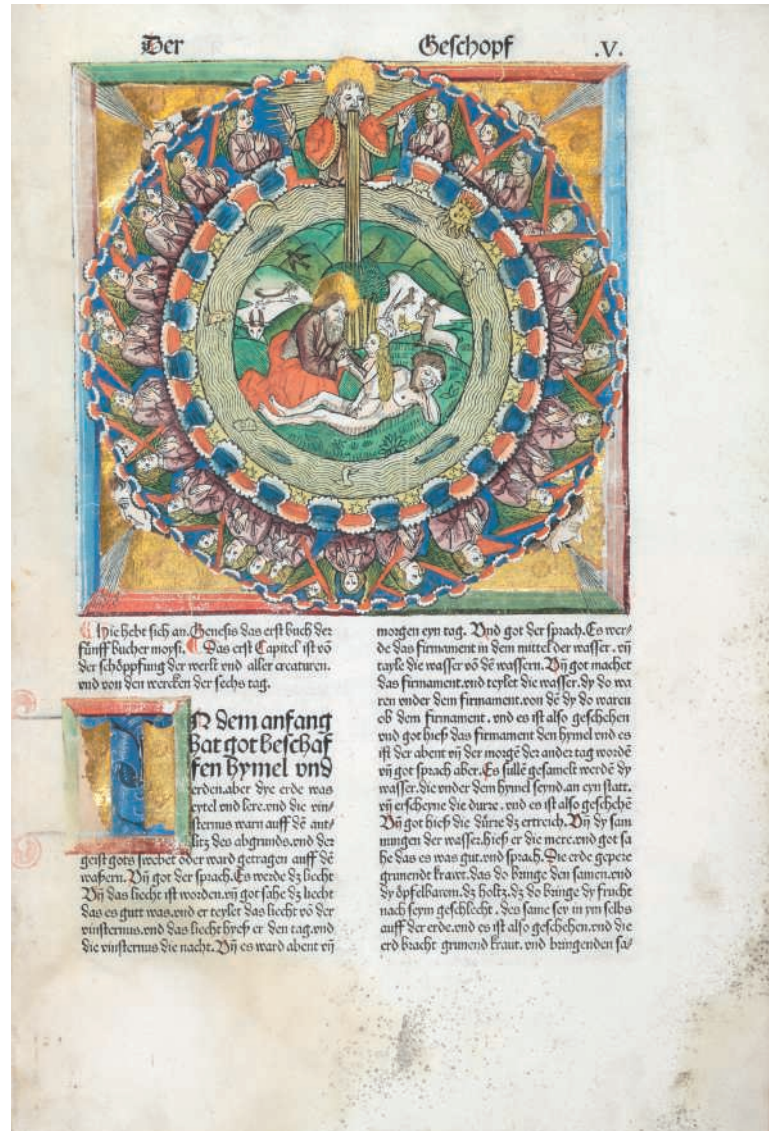 Der Geschopf .V.
Hie hebt sich an. Genesis das erst buch der
fünff bucher moysi. Das erst Capitel ist võ
der schöppfung der werlt vnd aller creaturen.
vnd von den wercken der sechs tag.
IN dem anfang
hat got beschaf
fen hymel vnd
erden. aber dye erde was
eytel vnd lere. vnd die vin⸗
sternus warn auff dẽ ant⸗
litz des abgrunds. vnd der
geist gots swebet oder ward getragen auff dẽ
waßern. Vñ got der sprach. Es werde dz liecht
Vñ das liecht ist worden. vñ got sahe dz liecht
das es gutt was. vnd er teylet das liecht võ der
vinsternus. vnd das liecht hyeß er den tag. vnd
die vinsternus die nacht. Vñ es ward abent vñ
morgen eyn tag. Vnd got der sprach. Es wer⸗
de das firmament in dem mittel der wasser. vñ
tayle die wasser võ dẽ wassern. Vñ got machet
das firmament. vnd teylet die wasser. dy do wa
ren vnder dem firmament. von dẽ dy do waren
ob dem firmament. vnd es ist also geschehen
vnd got hieß das firmament den hymel vnd es
ist der abent vñ der morgẽ der ander tag wordẽ
vñ got sprach aber. Es sullẽ gesamelt werdẽ dy
wasser. die vnder dem hymel seynd. an eyn statt.
vñ erscheyne die durre. vnd es ist also geschehẽ
Vñ got hieß die dürre dz ertreich. Vñ dy sam
nungen der wasser. hieß er die mere. vnd got sa
he das es was gut. vnd sprach. Die erde gepere
grunendt krawt. das do bringe den samen. vnd
dy öpfelbawm. dz holtz. dz do bringe dy frucht
nach seym geschlecht. des same sey in ym selbs
auff der erde. vnd es ist also geschehen. vnd die
erd bracht grunend kraut. vnd bringenden sa⸗